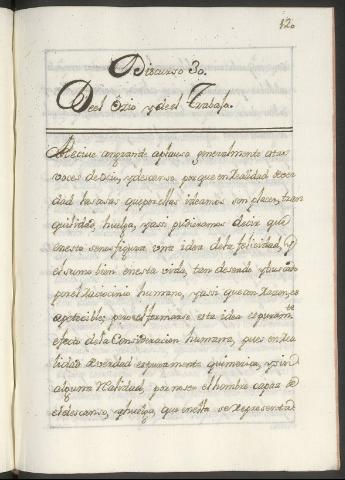 12.
Discurso 3o.
Del Ôcio y del Trabajo.
Reciue con grande aplauso generalmente estas
voces de ocio, y descanso porque en realidad de ver
dad las cosas que por ellas ideamos son placer, tran
quilidad, huelga, y assi pudieramos decir que
en esto se nos figura una idea de la felicidad, y
el sumo bien en esta vida, tan deseado y buscado
por el Raciocinio humano, y assi que con razon, es
apetecible; pero al formarse esta idea es puramte
efecto de la Consideracion humana, pues en Rea
lidad de verdad es puramente quimerica, y sin
alguna Realidad, por no ser el hombre capaz de
el descanso, y huelga, que en esta se representa